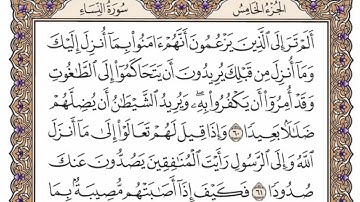 الجزء الخامس
سورة النساء
أَلَمْ تَرَ إِلَى ٱلَّذِينَ يَزْعُمُونَ أَنَّهُمْ ءَامَنُوا۟ بِمَآ أُنزِلَ إِلَيْكَ
وَمَآ أُنزِلَ مِن قَبْلِكَ يُرِيدُونَ أَن يَتَحَاكَمُوٓا۟ إِلَى ٱلطَّٰغُوتِ
وَقَدْ أُمِرُوٓا۟ أَن يَكْفُرُوا۟ بِهِۦ وَيُرِيدُ ٱلشَّيْطَٰنُ أَن يُضِلَّهُمْ
ضَلَٰلًۢا بَعِيدًا ٦٠ وَإِذَا قِيلَ لَهُمْ تَعَالَوْا۟ إِلَىٰ مَآ أَنزَلَ
ٱللَّهُ وَإِلَى ٱلرَّسُولِ رَأَيْتَ ٱلْمُنَٰفِقِينَ يَصُدُّونَ عَنكَ
صُدُودًا ٦١ فَكَيْفَ إِذَآ أَصَٰبَتْهُم مُّصِيبَةٌۢ بِمَا